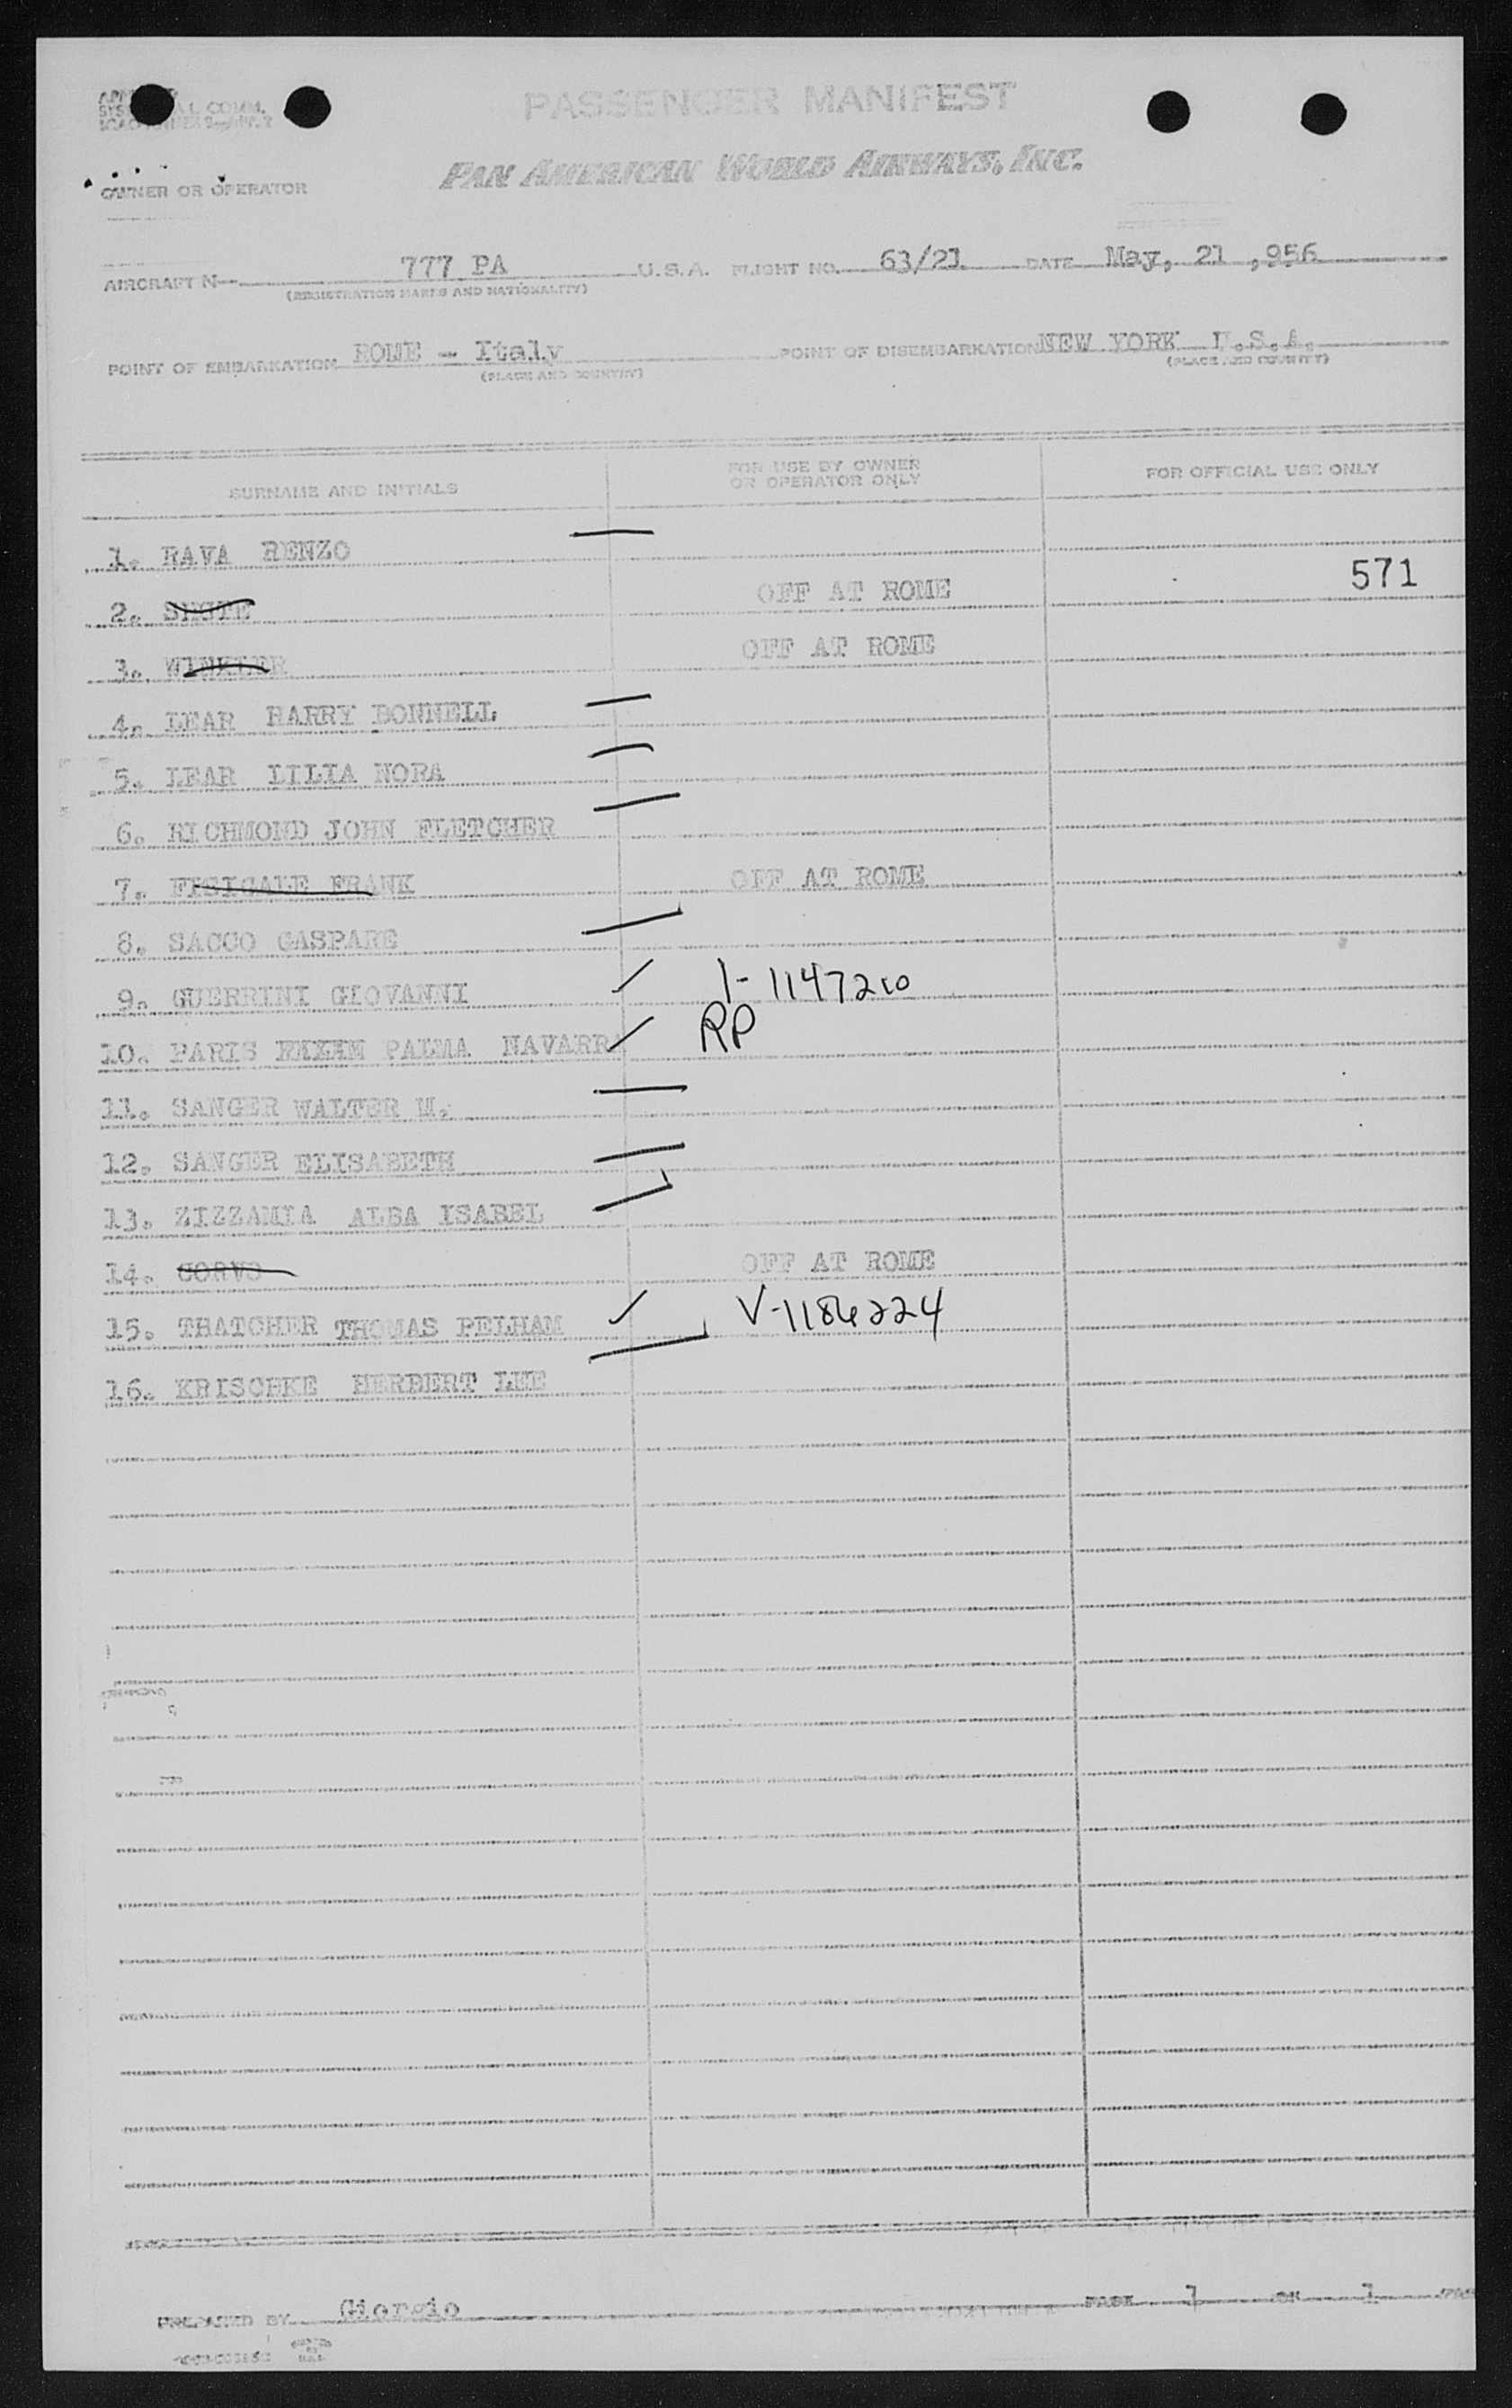 PASSENGER MANIFEST
PAN AMERICAN WORLD AIRWAYS, INC.
OWNER OR OPERATOR
AIRCRAFT N 777 PA U.S.A. FLIGHT NO. 63/21 DATE May, 21 ,956
(REGISTRATION MARKS AND NATIONALITY)
POINT OF EMBARKATION ROME - Italy POINT OF DISEMBARKATION NEW YORK U.S.A.
(PLACE AND COUNTRY) (PLACE AND COUNTRY)
SURNAME AND INITIALS FOR USE BY OWNER OR OPERATOR ONLY FOR OFFICIAL USE ONLY
1. RAVA RENZO
571
2. OFF AT ROME
3. WINKLER OFF AT ROME
4. LEAR HARRY BONNELL
5. LEAR LILIA NORA
6. RICHMOND JOHN FLETCHER
7. FRANK OFF AT ROME
8. SACCO GASPARE
9. GUERRINI GIOVANNI 1-1147210
10. PARIS PALMA NAVARRA RP
11. SANGER WALTER M.
12. SANGER ELISABETH
13. ZIZZAMIA ALBA ISABEL
14. CORVO OFF AT ROME
15. THATCHER THOMAS PELHAM V-1186224
16. KRISCHKE HERBERT LEE
PREPARED BY Giorgio PAGE 1 OF 1